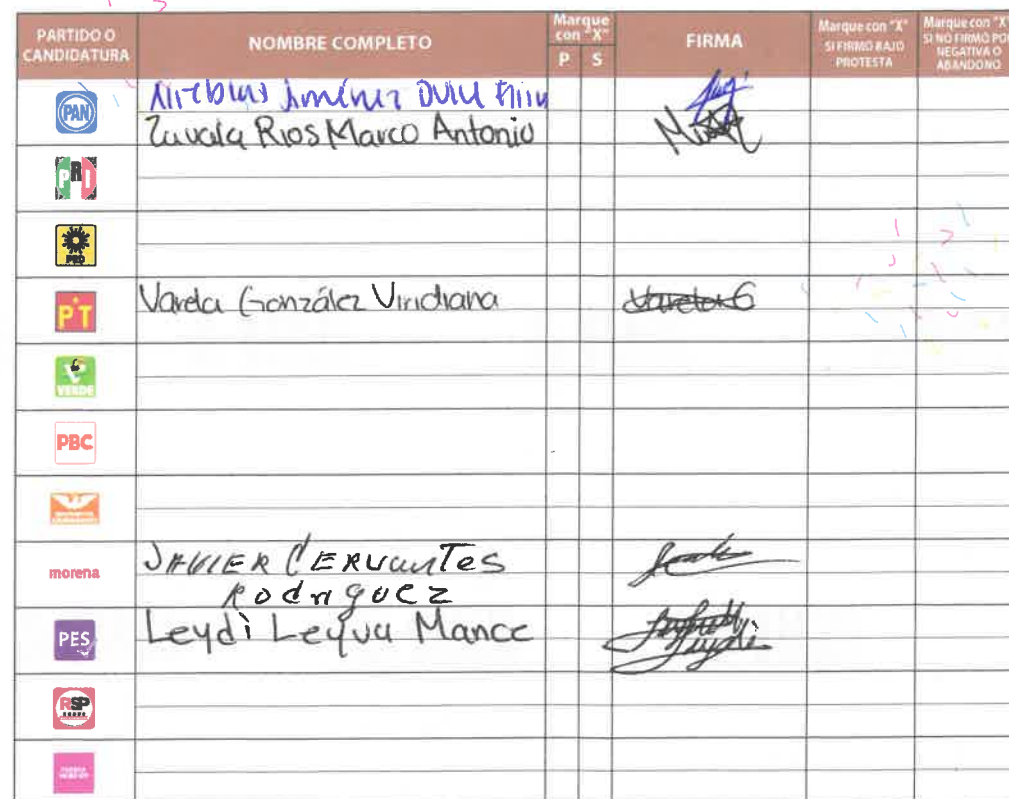 PARTIDO O CANDIDATURA
NOMBRE COMPLETO
Marque con "X"
P S
FIRMA
Marque con "X" SI FIRMÓ BAJO PROTESTA
Marque con "X" SI NO FIRMÓ POR NEGATIVA O ABANDONO
PAN
Jiménez
Zavala Rios Marco Antonio
PRI
PRD
PT Varela González Viridiana Varela G
VERDE
PBC
morena JAVIER CERVANTES
Rodriguez
PES Leydi Leyva
RSP